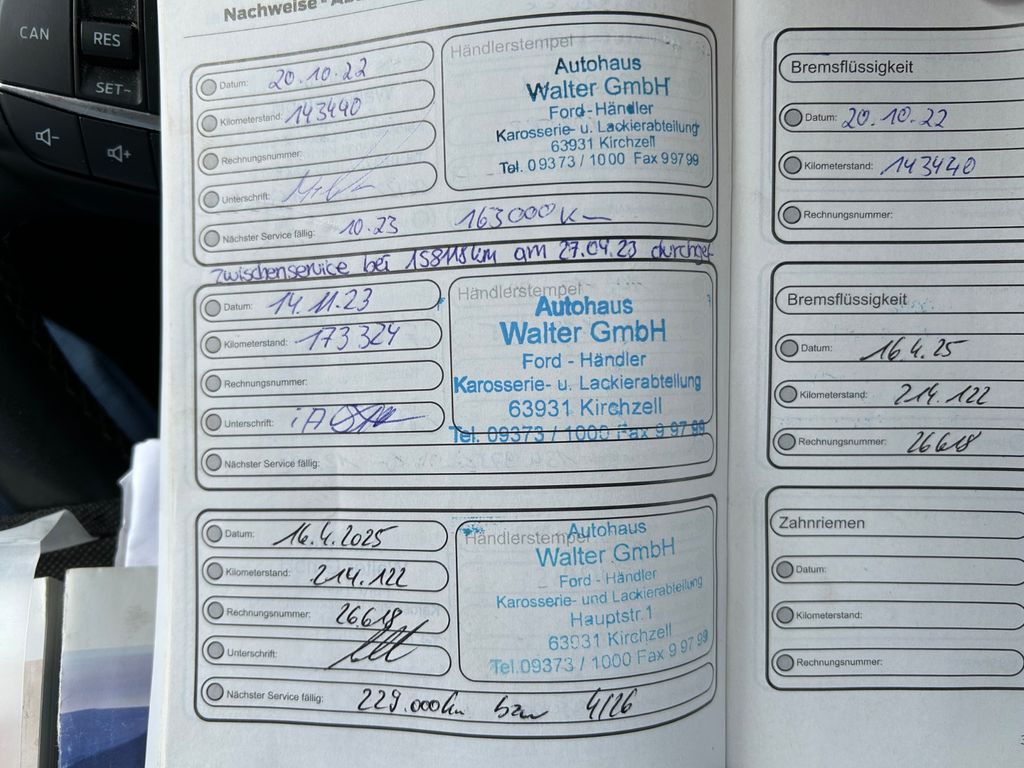 CAN
RES
SET-
Nachweise -
Datum: 20.10.22
Kilometerstand: 143440
Rechnungsnummer:
Unterschrift:
Nächster Service fällig: 10.23 163000 Km
Händlerstempel
Autohaus
Walter GmbH
Ford-Händler
Karosserie- u. Lackierabteilung
63931 Kirchzell
Tel. 09373 / 1000 Fax 99799
Zwischenservice bei 158118km am 27.04.23 durchgef.
Datum: 14.11.23
Kilometerstand: 173324
Rechnungsnummer:
Unterschrift: iA
Nächster Service fällig:
Händlerstempel
Autohaus
Walter GmbH
Ford - Händler
Karosserie- u. Lackierabteilung
63931 Kirchzell
Tel. 09373 / 1000 Fax 9 97 99
Datum: 16.4.2025
Kilometerstand: 214.122
Rechnungsnummer: 26618
Unterschrift:
Nächster Service fällig: 229.000km bzw 4/26
Händlerstempel
Autohaus
Walter GmbH
Ford - Händler
Karosserie- und Lackierabteilung
Hauptstr.1
63931 Kirchzell
Tel.09373 / 1000 Fax 9 97 99
Bremsflüssigkeit
Datum: 20.10.22
Kilometerstand: 143440
Rechnungsnummer:
Bremsflüssigkeit
Datum: 16.4.25
Kilometerstand: 214.122
Rechnungsnummer: 26618
Zahnriemen
Datum:
Kilometerstand:
Rechnungsnummer: